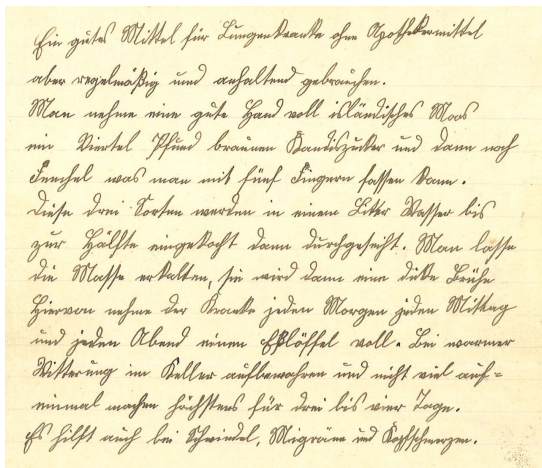 Ein gutes Mittel für Lungenkranke ohne Apothekermittel
aber regelmäßig und anhaltend gebrauchen.
Man nehme eine gute Hand voll isländisches Moos
ein Viertel Pfund braunen Kandiszucker und dann noch
Fenchel was man mit fünf Fingern fassen kann.
Diese drei Sorten werden in einem Litter Wasser bis
zur Hälfte eingekocht dann durchgeseiht. Man lasse
die Masse erkalten, sie wird dann eine dicke Brühe
Hiervon nehme der Kranke jeden Morgen jeden Mittag
und jeden Abend einen Eßlöffel voll. Bei warmer
Witterung im Keller aufbewahren und nicht viel auf=
einmal machen höchstens für drei bis vier Tage.
Es hilft auch bei Schwindel, Migräne und Kopfschmerzen.